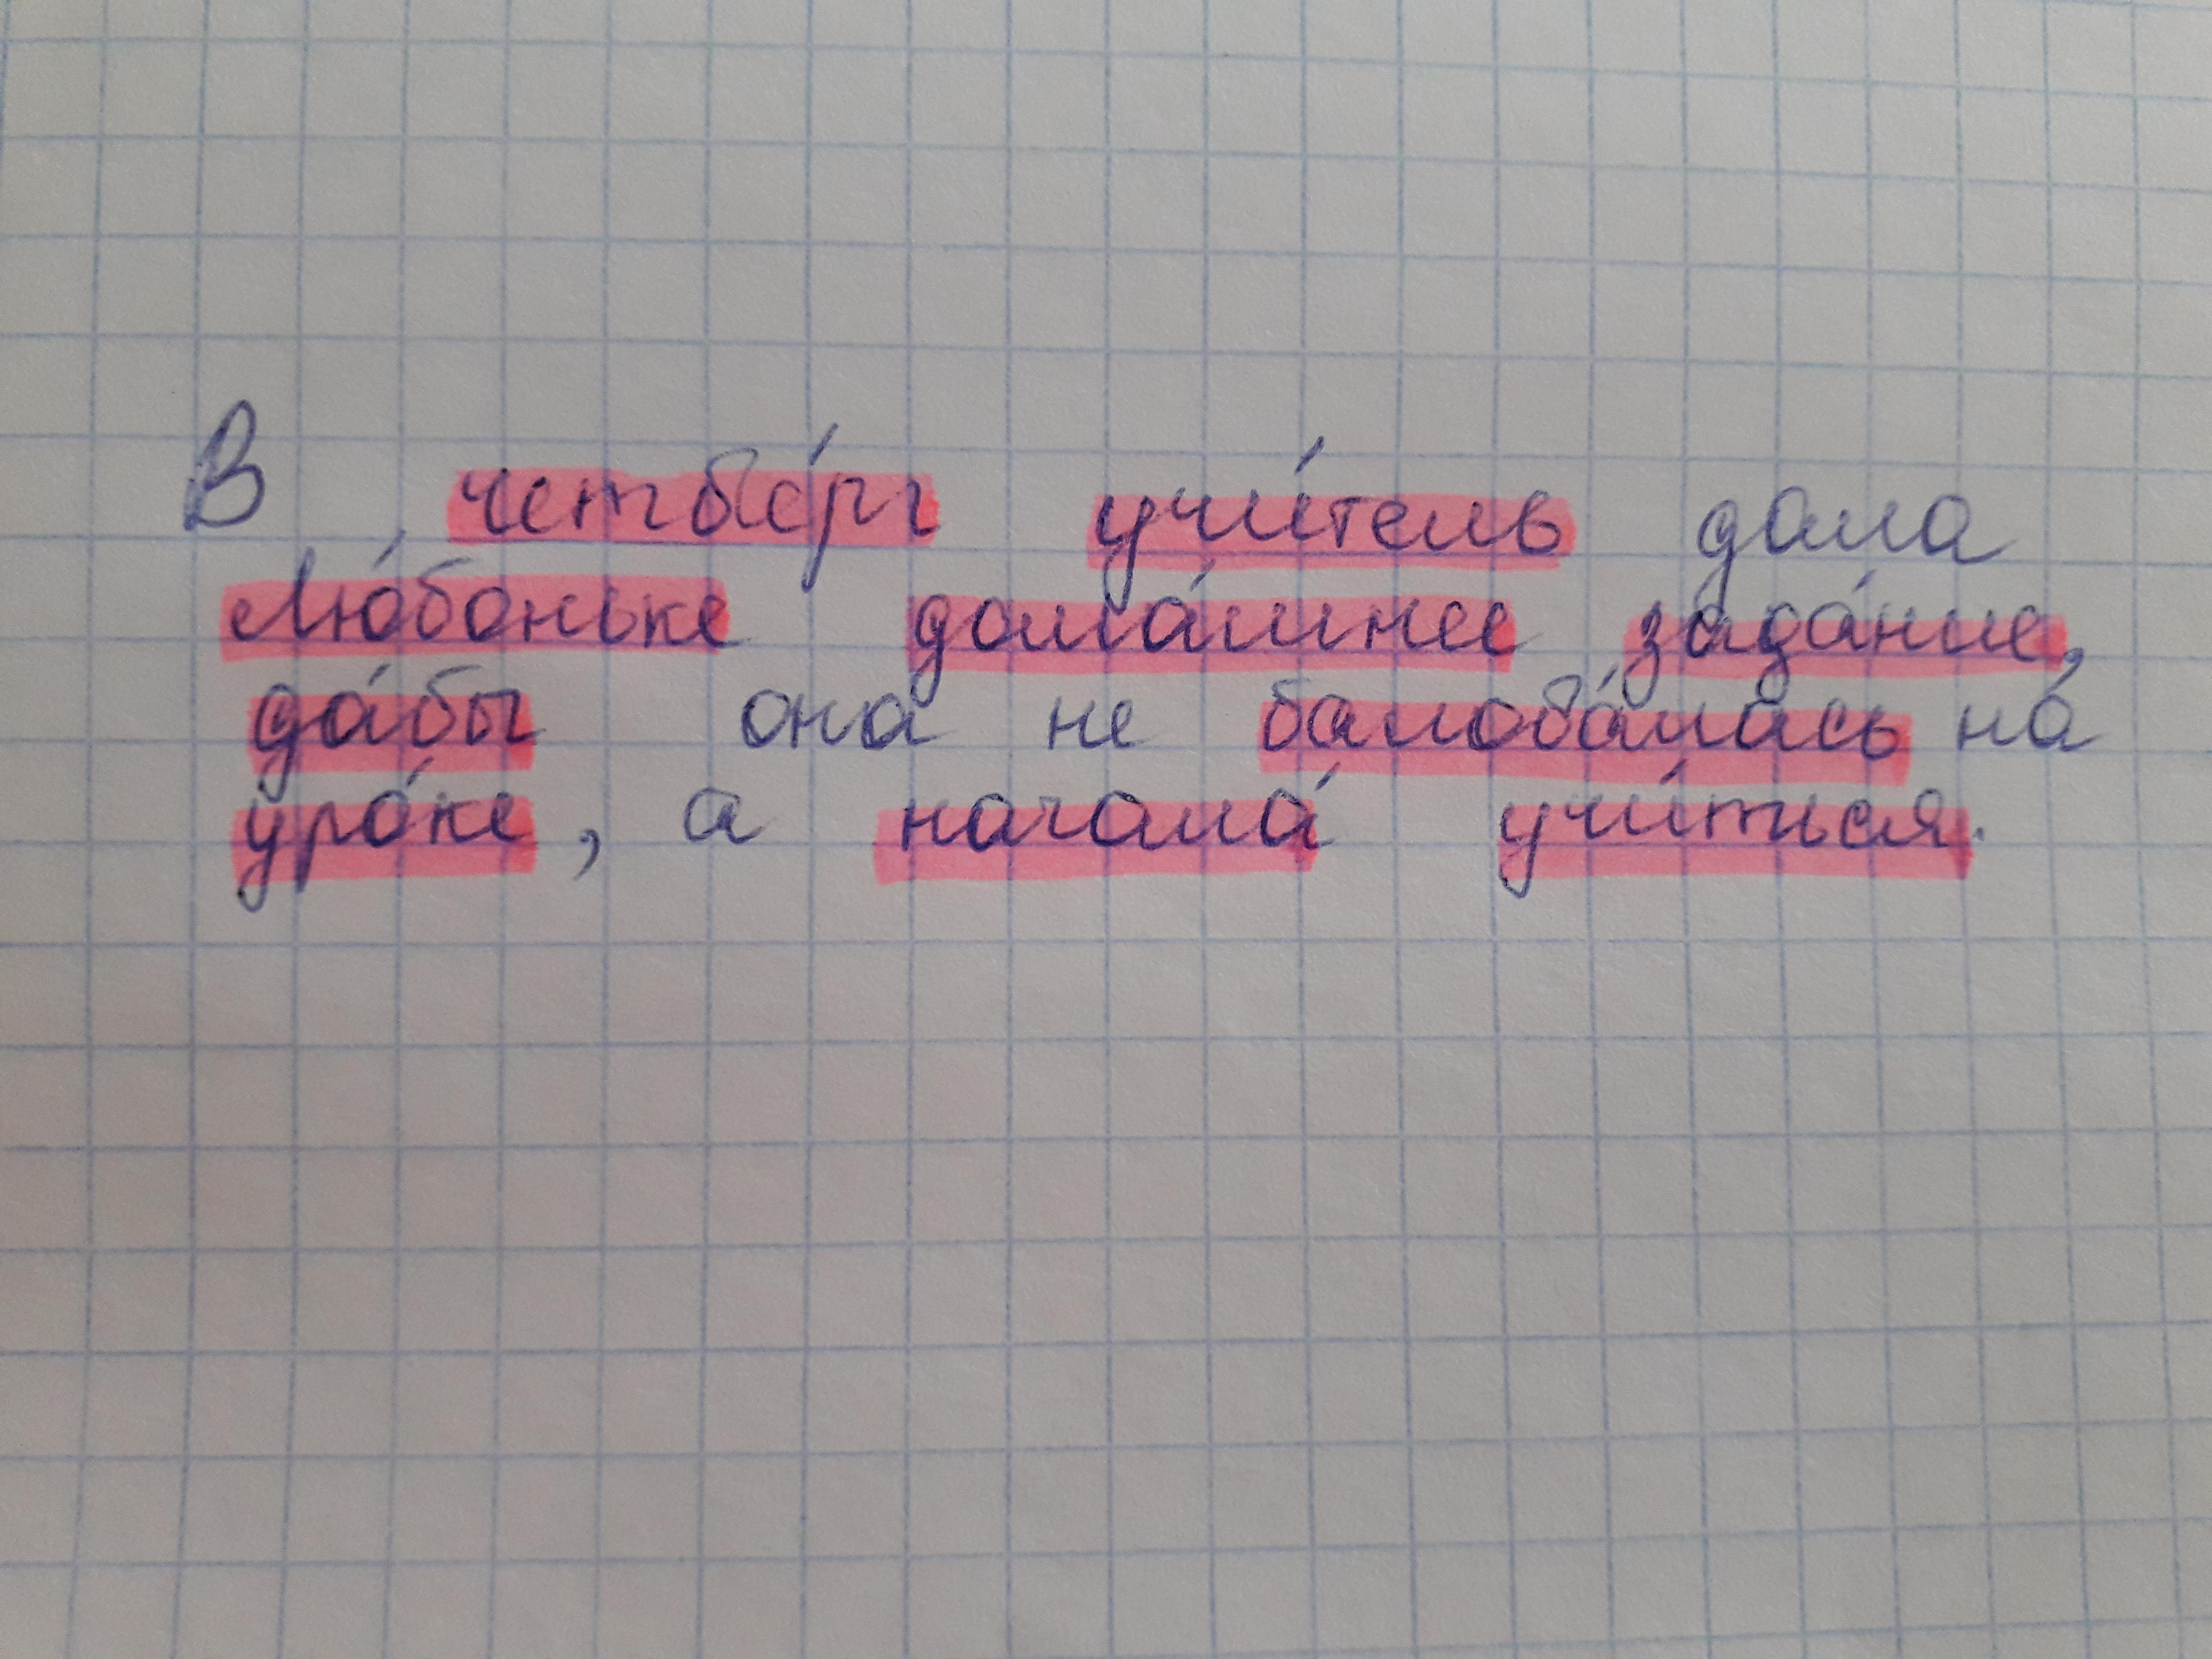 В четве́рг учи́тель дала
Лю́боньке дома́шнее зада́ние,
да́бы она не балова́лась на
уро́ке, а начала́ учи́ться.